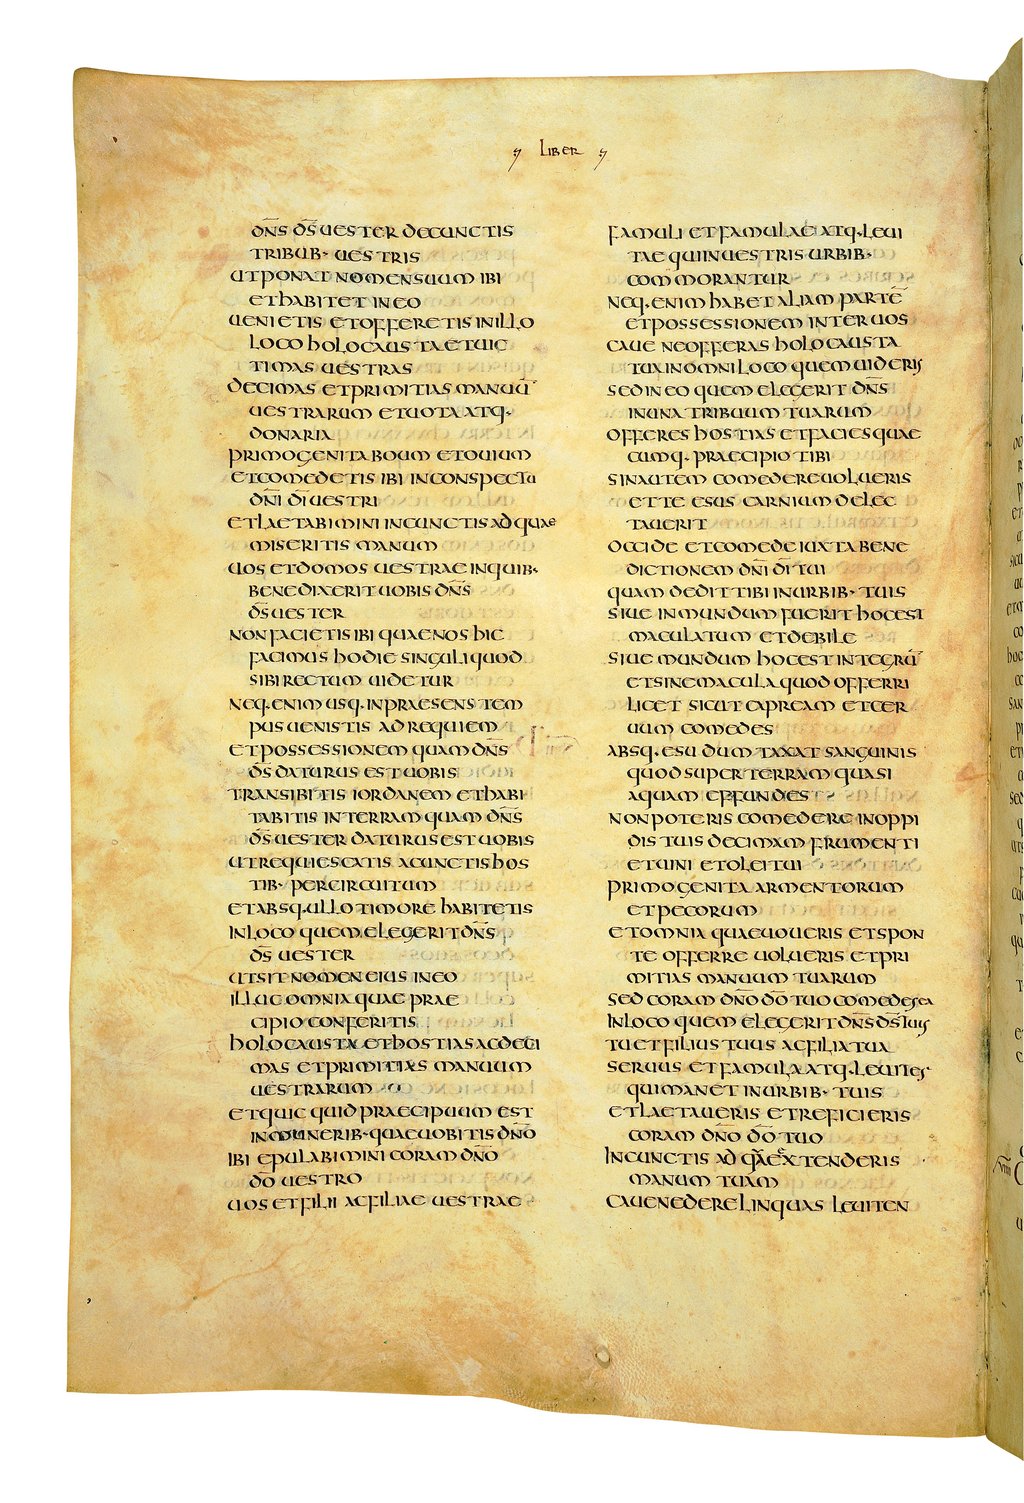 LIBER
DN̄S DS̄ UESTER DECUNCTIS
TRIBUB· UESTRIS
UT PONAT NOMEN SUUM IBI
ET HABITET IN EO
UENIETIS ET OFFERETIS IN ILLO
LOCO HOLOCAUSTA ET UIC
TIMAS UESTRAS
DECIMAS ET PRIMITIAS MANUŪ
UESTRARUM ET UOTA ATQ·
DONARIA
PRIMOGENITA BOUM ET OUIUM
ET COMEDETIS IBI IN CONSPECTU
DN̄I DĪ UESTRI
ET LAETABIMINI IN CUNCTIS AD QUAE
MISERITIS MANUM
UOS ET DOMOS UESTRAE IN QUIB·
BENEDIXERIT UOBIS DN̄S
DS̄ UESTER
NON FACIETIS IBI QUAE NOS HIC
FACIMUS HODIE SINGULI QUOD
SIBI RECTUM UIDETUR
NEQ· ENIM USQ· IN PRAESENS TEM
PUS UENISTIS AD REQUIEM
ET POSSESSIONEM QUAM DN̄S
DS̄ DATURUS EST UOBIS
TRANSIBITIS IORDANEM ET HABI
TABITIS IN TERRAM QUAM DN̄S
DS̄ UESTER DATURUS EST UOBIS
UT REQUIESCATIS A CUNCTIS HOS
TIB· PER CIRCUITUM
ET ABSQ· ULLO TIMORE HABITETIS
IN LOCO QUEM ELEGERIT DN̄S
DS̄ UESTER
UT SIT NOMEN EIUS IN EO
ILLUC OMNIA QUAE PRAE
CIPIO CONFERITIS
HOLOCAUSTA ET HOSTIAS AC DECI
MAS ET PRIMITIAS MANUUM
UESTRARUM
ET QUIC QUID PRAECIPUUM EST
IN MUNERIB· QUAE UOBITIS DN̄O
IBI EPULABIMINI CORAM DN̄O
DŌ UESTRO
UOS ET FILII AC FILIAE UESTRAE
FAMULI ET FAMULAE ATQ· LEUI
TAE QUI IN UESTRIS URBIB·
COMMORANTUR
NEQ· ENIM HABET ALIAM PARTĒ
ET POSSESSIONEM INTER UOS
CAUE NE OFFERAS HOLOCAUSTA
TUA IN OMNI LOCO QUEM UIDERIS
SED IN EO QUEM ELEGERIT DN̄S
IN UNA TRIBUUM TUARUM
OFFERES HOSTIAS ET FACIES QUAE
CUMQ· PRAECIPIO TIBI
SIN AUTEM COMEDERE UOLUERIS
ET TE ESUS CARNIUM DELEC
TAUERIT
OCCIDE ET COMEDE IUXTA BENE
DICTIONEM DN̄I DĪ TUI
QUAM DEDIT TIBI IN URBIB· TUIS
SIUE INMUNDUM FUERIT HOC EST
MACULATUM ET DEBILE
SIUE MUNDUM HOC EST INTEGRŪ
ET SINE MACULA QUOD OFFERRI
LICET SICUT CAPREAM ET CER
UUM COMEDES
ABSQ· ESU DUM TAXAT SANGUINIS
QUOD SUPER TERRAM QUASI
AQUAM EFFUNDES
NON POTERIS COMEDERE IN OPPI
DIS TUIS DECIMAM FRUMENTI
ET UINI ET OLEI TUI
PRIMOGENITA ARMENTORUM
ET PECORUM
ET OMNIA QUAE UOUERIS ET SPON
TE OFFERRE UOLUERIS ET PRI
MITIAS MANUUM TUARUM
SED CORAM DN̄O DŌ TUO COMEDES EA
IN LOCO QUEM ELEGERIT DN̄S DS̄ TUUS
TU ET FILIUS TUUS AC FILIA TUA
SERUUS ET FAMULA ATQ· LEUITES
QUI MANET IN URBIB· TUIS
ET LAETAUERIS ET REFICIERIS
CORAM DN̄O DŌ TUO
IN CUNCTIS AD QUAE EXTENDERIS
MANUM TUAM
CAUE NE DERELINQUAS LEUITEN